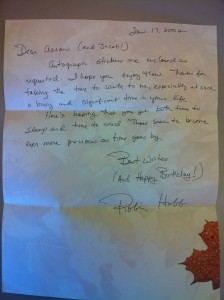 Jan 17, 2002
Dear Aaron (and Jacob!)
Autograph stickers are enclosed as
requested. I hope you enjoy them. Thanks for
taking the time to write to me, especially at such
a busy and significant time in your life.
Here's hoping that you get both time to
sleep and time to read. These seem to become
ever more precious as time goes by.
Best Wishes
(And Happy Birthday!)
Robin Hobb